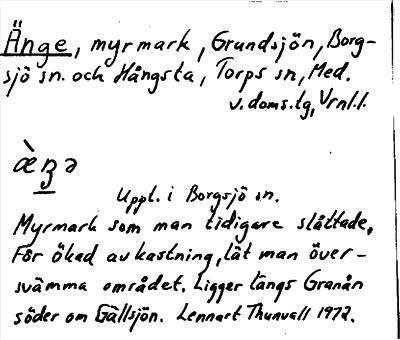 Änge, myrmark, Grundsjön, Borg-
sjö sn. och Hångsta, Torps sn, Med.
v. doms.lg, Vrnl.l.
Uppt. i Borgsjö sn.
Myrmark som man tidigare slåttade.
För ökad avkastning, lät man över-
svämma området. Ligger längs Granån
söder om Gällsjön. Lennart Thunvall 1972.